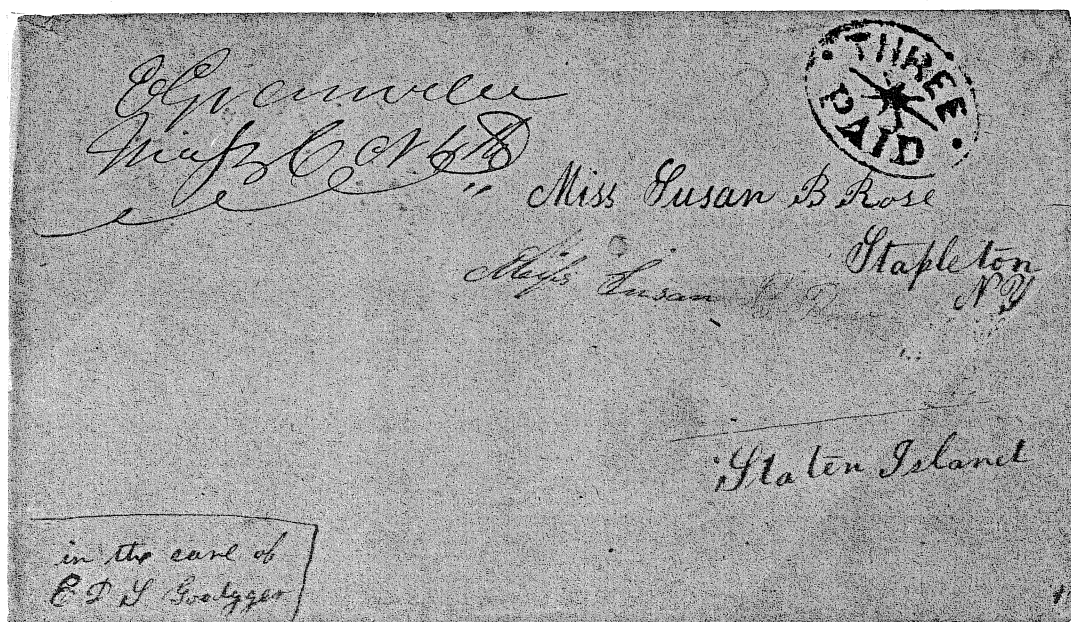 E Granville
Mass Oct
THREE
PAID
Miss Susan B Rose
Stapleton
N Y
Miss Susan
Staten Island
in the care of
E D S